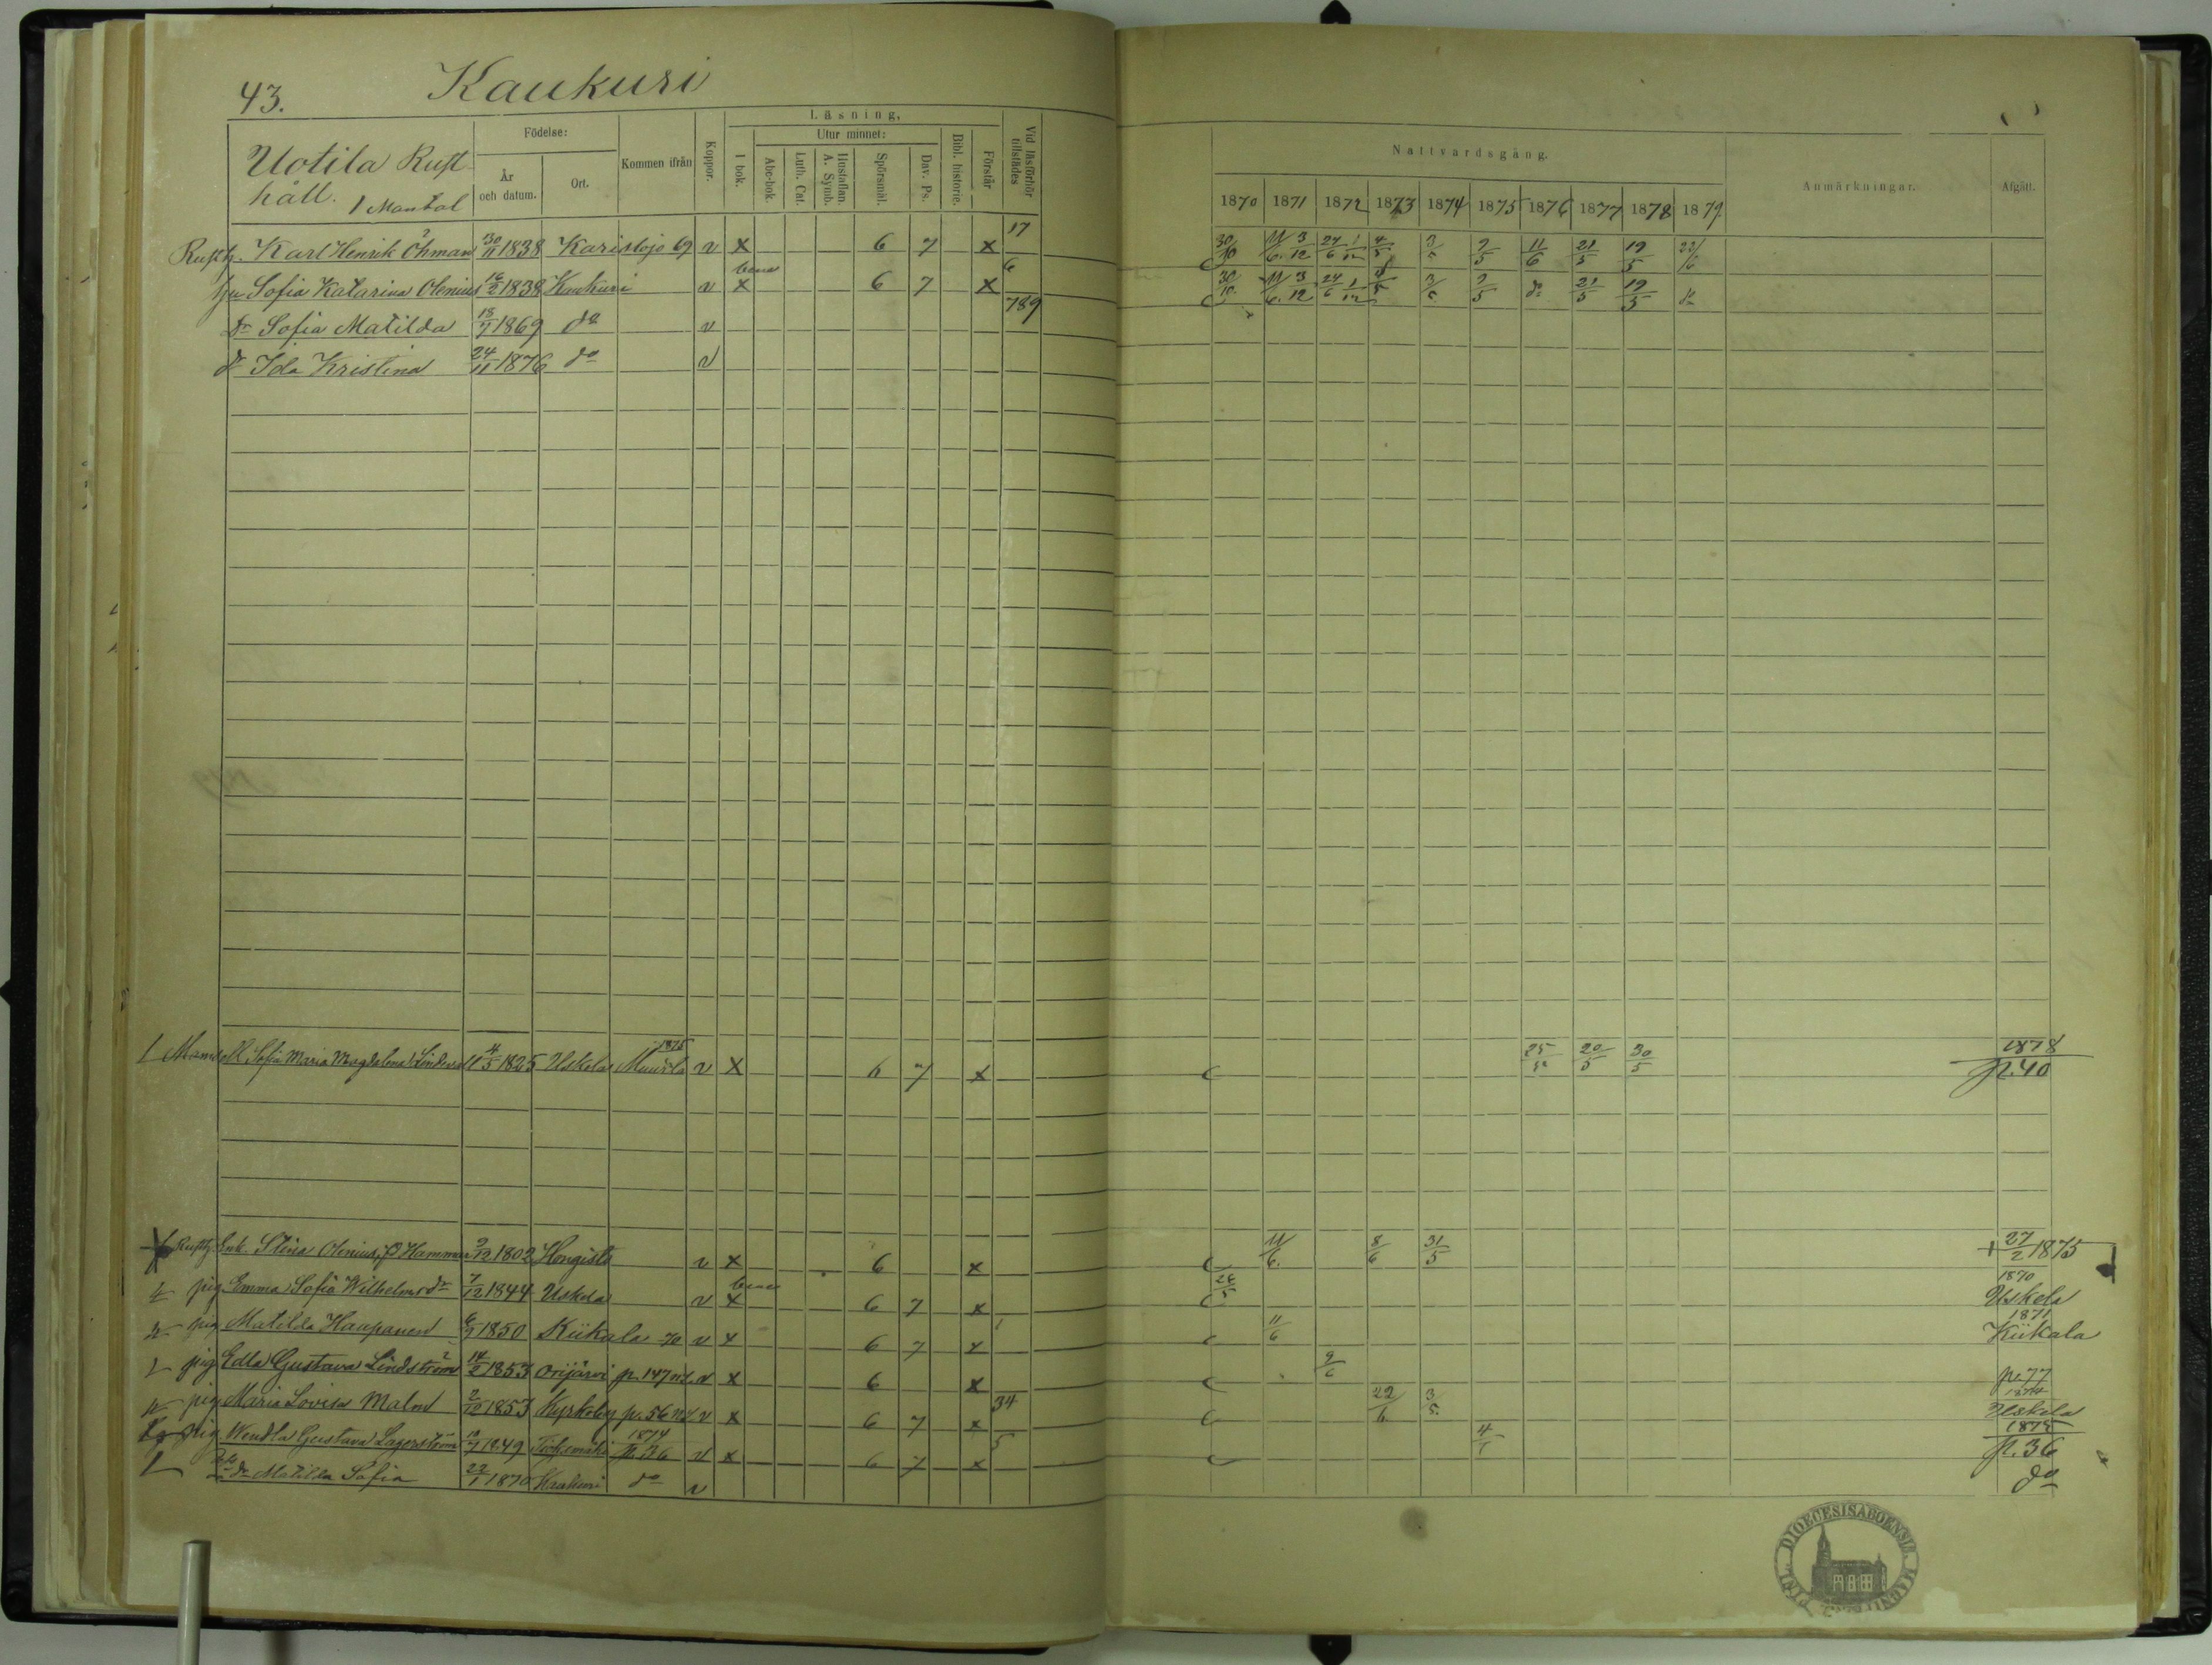 43. Kaukuri
Uotila Rust
håll. 1 Mantal
Födelse:
År och datum.
Ort.
Kommen ifrån
Koppor.
Läsning.
I bok.
Utur minnet:
Abc-bok.
Luth. Cat.
Hustaflan. A. Symb.
Spörsmål.
Dav. Ps.
Bibl. historie.
Förstår
Vid läsförhör tillstädes
Nattvardsgång.
1870 1871 1872 1873 1874 1875 1876 1877 1878 1879
Anmärkningar.
Afgått.
17
Rusth. Karl Henrik Öhman 30/11 1838 Karislojo 69 v x 6 7 x 30/10 11/6. 3/12 24/6 1/12 4/5 3/5 9/5 11/6 21/5 19/5 22/6
6
hu Sofia Katarina Olenius 16/2 1838 Kaukuri v x 6 7 x 30/10 11/6. 3/12 24/6 1/12 4/5 3/5 9/5 do 21/5 19/5 do
789
Dr Sofia Matilda 18/7 1869 do v
dr Ida Kristina 24/11 1876 do v
1 Mamsell Sofia Maria Magdalena 4/5 1825 Uskela 1875 Muurla v x 6 7 x 25/5 20/5 30/5 1878 p. 40
Rusth. Enk. Stina Olenius, f. Hammar 9/12 1802 Hongisto v x 6 x 11/6. 8/6 31/5 + 27/2 1875
pig Emma Sofia Wilhelmsdr 7/12 1844 Uskela v x 6 7 x 26/5 1870 Uskela
pig Matilda Haapanen 6/7 1850 Kiikala 70 v x 6 7 x 11/6 1871 Kiikala
pig Edla Gustava Lindström 14/2 1853 Orijärvi p. 147 v x 6 x 9/6 p. 77
pig Maria Lovisa Malm 2/12 1853 Kyrkoby p. 56 v x 6 7 x 34 22/6. 3/5. 1874 Uskela
pig Wendla Gustava Lagerström 1849 1874 p. 36 v x 6 7 x 5 4/1 1875 p. 36
dr Matilda Sofia 22/1 1870 Kaukuri do v do
DIOECESIS ABOENSIS